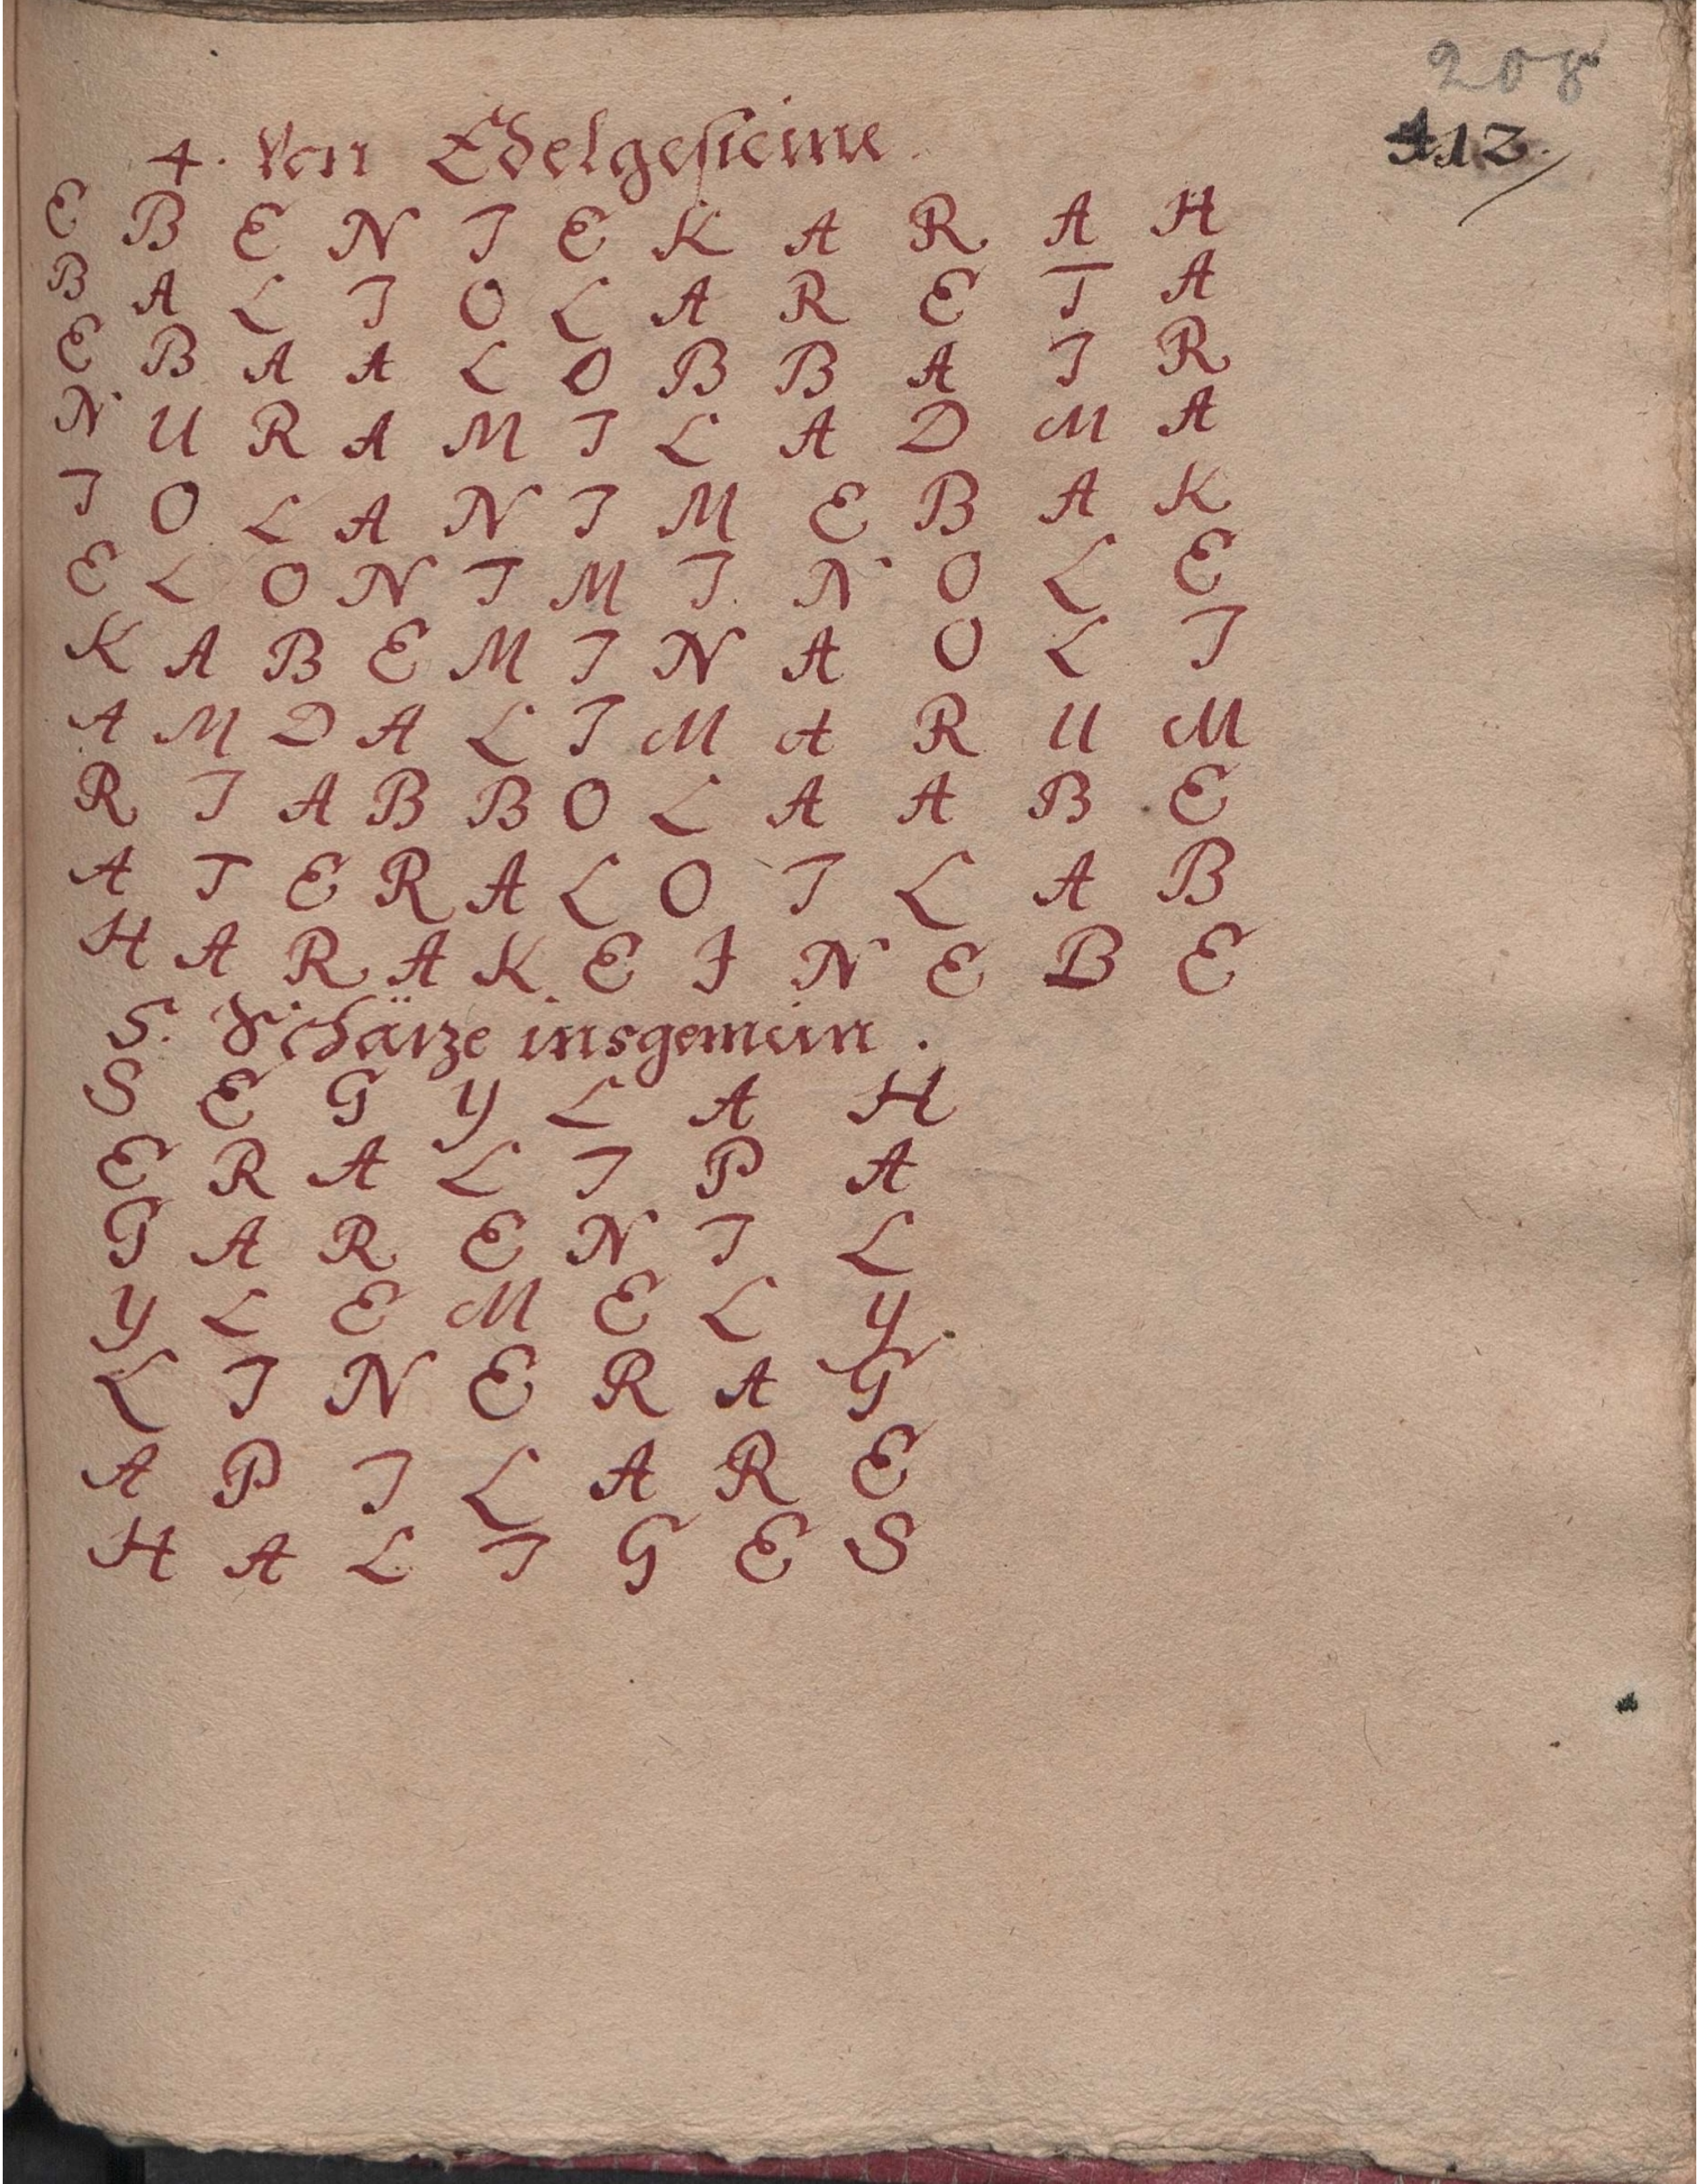 208
112.
4. Von Edelgesteine.
E B E N I E K A R A H
B A L I O L A R E T A
E B A A L O B B A I R
N U R A M I L A D M A
I O L A N I M E B A K
E L O N I M I N O L E
K A B E M I N A O L I
A M D A L I M A R U M
R I A B B O L A A B E
A T E R A L O I L A B
H A R A K E I N E B E
5. Schätze insgemein.
S E G Y L A H
E R A L I P A
G A R E N I L
Y L E M E L Y
L I N E R A G
A P I L A R E
H A L I G E S